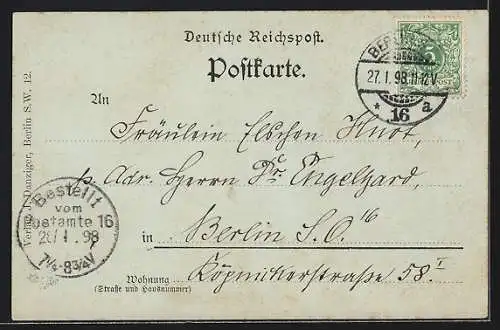 Deutsche Reichspost.
Postkarte.
BERLIN
27.1.98.11-12V
* 16 a
5
An
Fräulein Elschen Knot,
p. Adr. Herrn Dr. Engelhard,
in Berlin S.O. 16
Köpnickerstraße 58 I
Wohnung
(Straße und Hausnummer)
Bestellt
vom
Postamte 16
28/1.98
7½-8¾V
Danziger, Berlin S.W. 12.